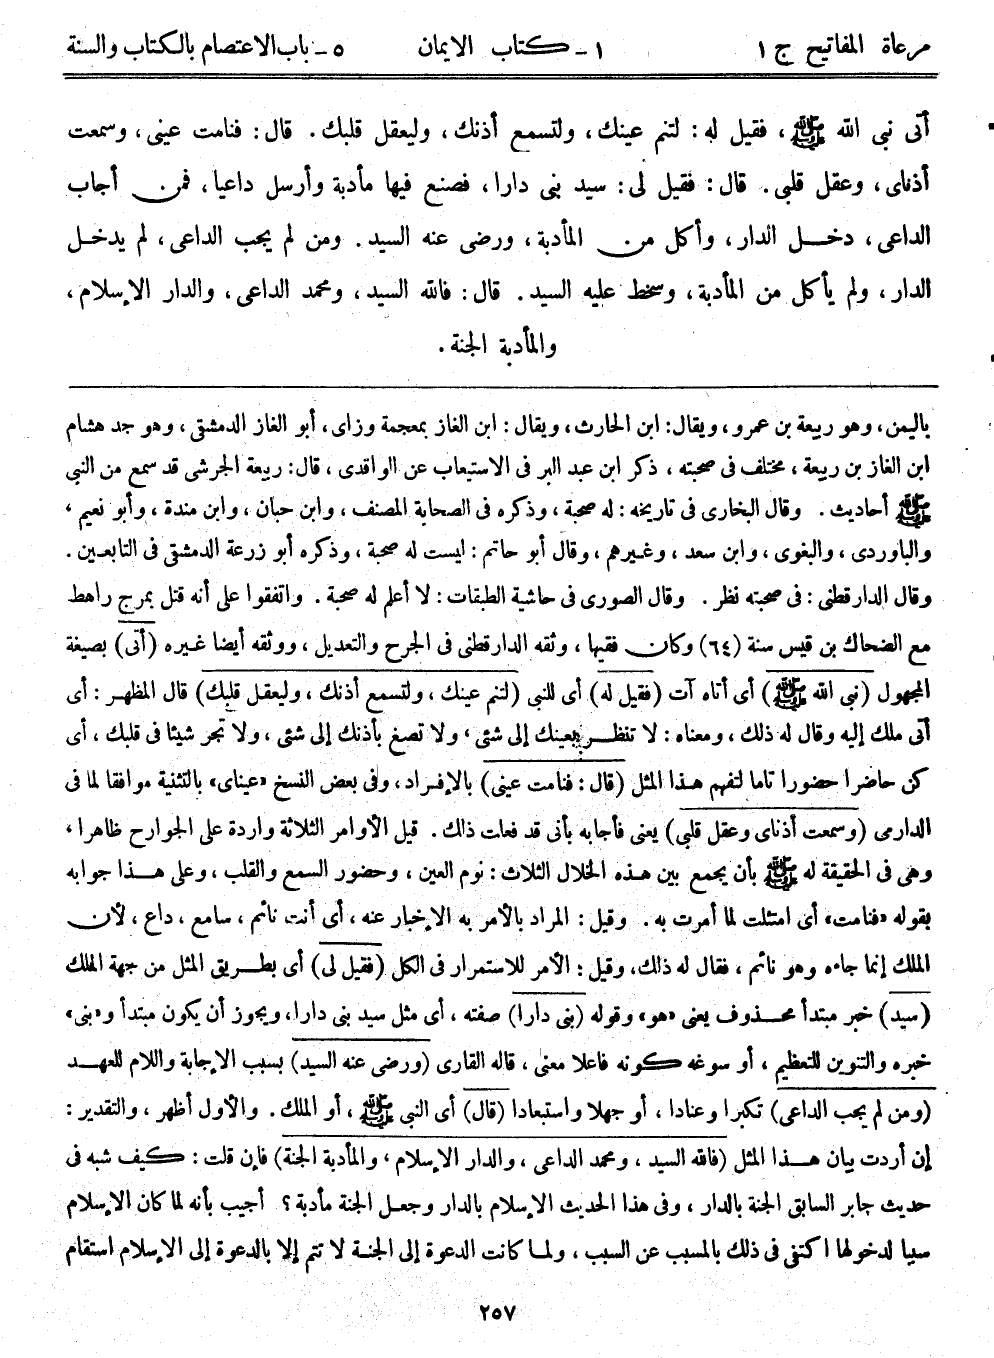 مرعاة المفاتيح ج ١ ١ - كتاب الايمان ٥ - باب الاعتصام بالكتاب والسنة
أتى نبى الله ﷺ، فقيل له: لتنم عينك، ولتسمع أذنك، وليعقل قلبك. قال: فنامت عينى، وسمعت
أذناى، وعقل قلبى. قال: فقيل لى: سيد بنى دارا، فصنع فيها مأدبة وأرسل داعيا، فمن أجاب
الداعى، دخل الدار، وأكل من المأدبة، ورضى عنه السيد. ومن لم يجب الداعى، لم يدخل
الدار، ولم يأكل من المأدبة، وسخط عليه السيد. قال: فالله السيد، ومحمد الداعى، والدار الإسلام،
والمأدبة الجنة.
باليمن، وهو ربيعة بن عمرو، ويقال: ابن الحارث، ويقال: ابن الغاز بمعجمة وزاى، أبو الغاز الدمشقى، وهو جد هشام
ابن الغاز بن ربيعة، مختلف فى صحبته، ذكر ابن عبد البر فى الاستيعاب عن الواقدى، قال: ربيعة الجرشى قد سمع من النبي
ﷺ أحاديث. وقال البخارى فى تاريخه: له صحبة، وذكره فى الصحابة المصنف، وابن حبان، وابن مندة، وأبو نعيم،
والباوردى، والبغوى، وابن سعد، وغيرهم، وقال أبو حاتم: ليست له صحبة، وذكره أبو زرعة الدمشقى فى التابعين.
وقال الدارقطنى: فى صحبته نظر. وقال الصورى فى حاشية الطبقات: لا أعلم له صحبة. واتفقوا على أنه قتل بمرج راهط
مع الضحاك بن قيس سنة (٦٤) وكان فقيها، وثقه الدارقطنى فى الجرح والتعديل، ووثقه أيضا غيره (أتى) بصيغة
المجهول (نبى الله ﷺ) أى أتاه آت (فقيل له) أى للنبى (لتنم عينك، ولتسمع أذنك، وليعقل قلبك) قال المظهر: أى
أتى ملك إليه وقال له ذلك، ومعناه: لا تنظر بعينك إلى شئى، ولا تصغ بأذنك إلى شئى، ولا تجر شيئا فى قلبك، أى
كن حاضرا حضورا تاما لتفهم هذا المثل (قال: فنامت عينى) بالإفراد، وفى بعض النسخ «عيناى» بالتثنية موافقا لما فى
الدارمى (وسمعت أذناى وعقل قلبى) يعنى فأجابه بأنى قد فعلت ذالك. قيل الأوامر الثلاثة واردة على الجوارح ظاهرا،
وهى فى الحقيقة له ﷺ بأن يجمع بين هذه الخلال الثلاث: نوم العين، وحضور السمع والقلب، وعلى هذا جوابه
بقوله «فنامت» أى امتثلت لما أمرت به. وقيل: المراد بالأمر به الإخبار عنه، أى أنت نائم، سامع، داع، لأن
الملك إنما جاءه وهو نائم، فقال له ذلك، وقيل: الأمر للاستمرار فى الكل (فقيل لى) أى بطريق المثل من جهة الملك
(سيد) خبر مبتدأ محذوف يعنى «هو» وقوله (بنى دارا) صفته، أى مثل سيد بنى دارا، ويجوز أن يكون مبتدأ و«بنى»
خبره والتنوين للتعظيم، أو سوغه كونه فاعلا معنى، قاله القارى (ورضى عنه السيد) بسبب الإجابة واللام للعهد
(ومن لم يجب الداعى) تكبرا وعنادا، أو جهلا واستبعادا (قال) أى النبي ﷺ، أو الملك. والأول أظهر، والتقدير:
إن أردت بيان هذا المثل (فالله السيد، ومحمد الداعى، والدار الإسلام، والمأدبة الجنة) فإن قلت: كيف شبه فى
حديث جابر السابق الجنة بالدار، وفى هذا الحديث الإسلام بالدار وجعل الجنة مأدبة؟ أجيب بأنه لما كان الإسلام
سببا لدخولها اكتفى فى ذلك بالمسبب عن السبب، ولما كانت الدعوة إلى الجنة لا تتم إلا بالدعوة إلى الإسلام استقام
٢٥٧